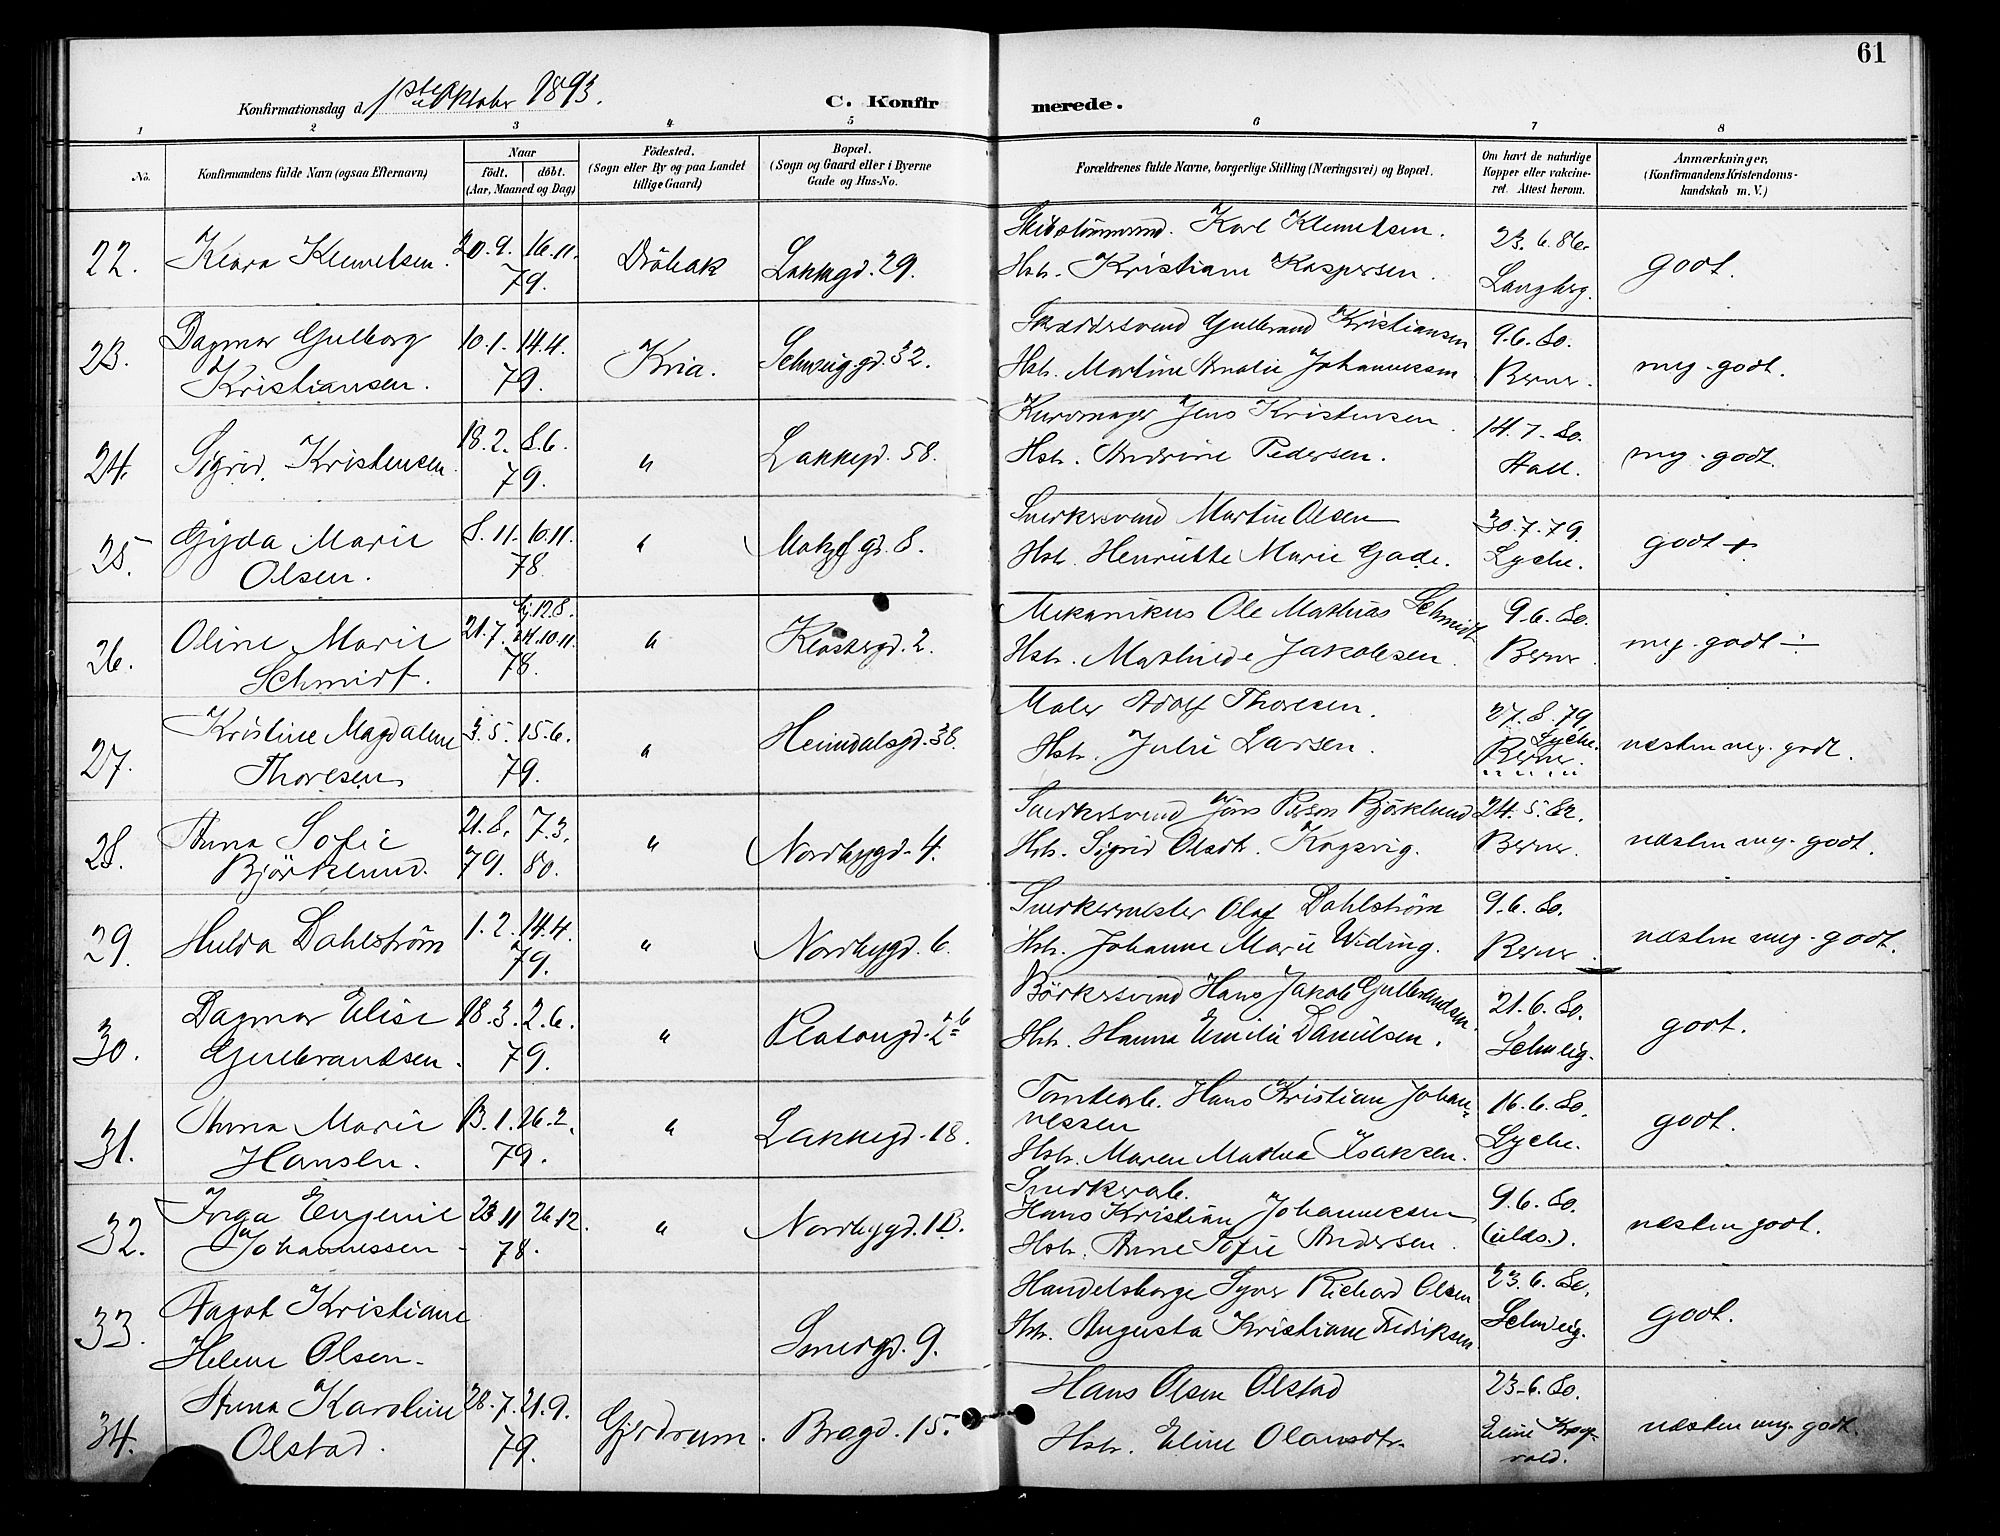 61
Konfirmationsdag d. 1ste Oktober 1893.
C. Konfir
merede.
1 2 3 4 5 6 7 8
No.
Konfirmandens fulde Navn (ogsaa Efternavn)
Naar
født. döbt.
(Aar, Maaned og Dag)
Födested.
(Sogn eller By og paa Landet
tillige Gaard)
Bopæl.
(Sogn og Gaard eller i Byerne
Gade og Hus-No.
Forældrenes fulde Navne, borgerlige Stilling (Næringsvei) og Bopæl.
Om havt de naturlige
Kopper eller vakcine-
ret. Attest herom.
Anmærkninger.
(Konfirmandens Kristendoms-
kundskab m. V.)
22. Klara Klemetsen. 20.9. 16.11. 79. Dröbak Lakkegd. 29.
Karl Klemetsen.
Hstr. Kristiane Kaspersen. 23.6.86. Langberg. godt.
23. Dagmar Gulborg
Kristiansen. 10.1. 14.4. 79. Kria. Schweiggd. 32.
Skræddersvend Gulbrand Kristiansen
Hstr. Martine Amalie Johannessen 9.6.80. Berner. meg. godt.
24. Sigrid Kristensen. 18.2. 8.6. 79. " Lakkegd. 58.
Kurvmager Jens Kristensen.
Hstr. Andrine Pedersen. 14.7.80. Hall. meg. godt.
25. Gyda Marie
Olsen. 8.11. 10.11. 78. " gd. 8.
Snerkersvend Martin Olsen
Hstr. Henriette Marie Gade. 30.7.79. Lyche. godt +.
26. Oline Marie
Schmidt. 21.7. hj. 12.8. 24.10.11. 78. " Klostergd. 2.
Mekanikus Ole Mathias Schmidt
Hstr. Mathilde Jakobsen. 9.6.80. Berner. meg. godt ÷
27. Kristine Magdalene
Thoresen 3.5. 15.6. 79. " Heimdalsgd. 38.
Maler Adolf Thoresen.
Hstr. Julie Larsen. 27.8.79. Lyche. Berner. næsten meg. godt.
28. Anna Sofie
Björklund. 21.8. 79. 7.3. 80. " Nordbygd. 4.
Snerkersvend Jöns Person Björklund
Hstr. Sigrid Olsdtr. 24.5.82. Berner. næsten meg. godt.
29. Hulda Dahlström 1.2. 14.4. 79. " Nordbygd. 6.
Snerkermester Olaf Dahlström
Hstr. Johanne Marie Widing. 9.6.80. Berner. næsten meg. godt.
30. Dagmar Elise
Gulbrandsen. 18.3. 2.6. 79. " Platougd. 2b
Hans Jakob Gulbrandsen.
Hstr. Hanna Emilie Danielsen. 21.6.80. Schweig. godt.
31. Anna Marie
Hansen. 13.1. 26.2. 79. " Lakkegd. 18.
Tomtearb. Hans Kristian Johan-
nessen
Hstr. Maren Mathea Isaksen. 16.6.80. Lyche. godt.
32. Inga Eugenie
Johannessen 23.11 26.12. 78. " Nordbygd. 13.
Snerkerarb.
Hans Kristian Johannessen
Hstr. Anne Sofie Andersen. 9.6.80. næsten godt.
33. Aagot Kristiane
Helene Olsen. Smedgd. 9.
Handelsborger Syver Richard Olsen
Hstr. Augusta Kristiane Fredriksen 23.6.80. Schweig. godt.
34. Anna Karoline
Olstad. 28.7. 21.9. 79. Gjerdrum. Bragd. 15.
Hans Olsen Olstad
Hstr. Eline Olausdtr. 23.6.80. Eline næsten meg. godt.